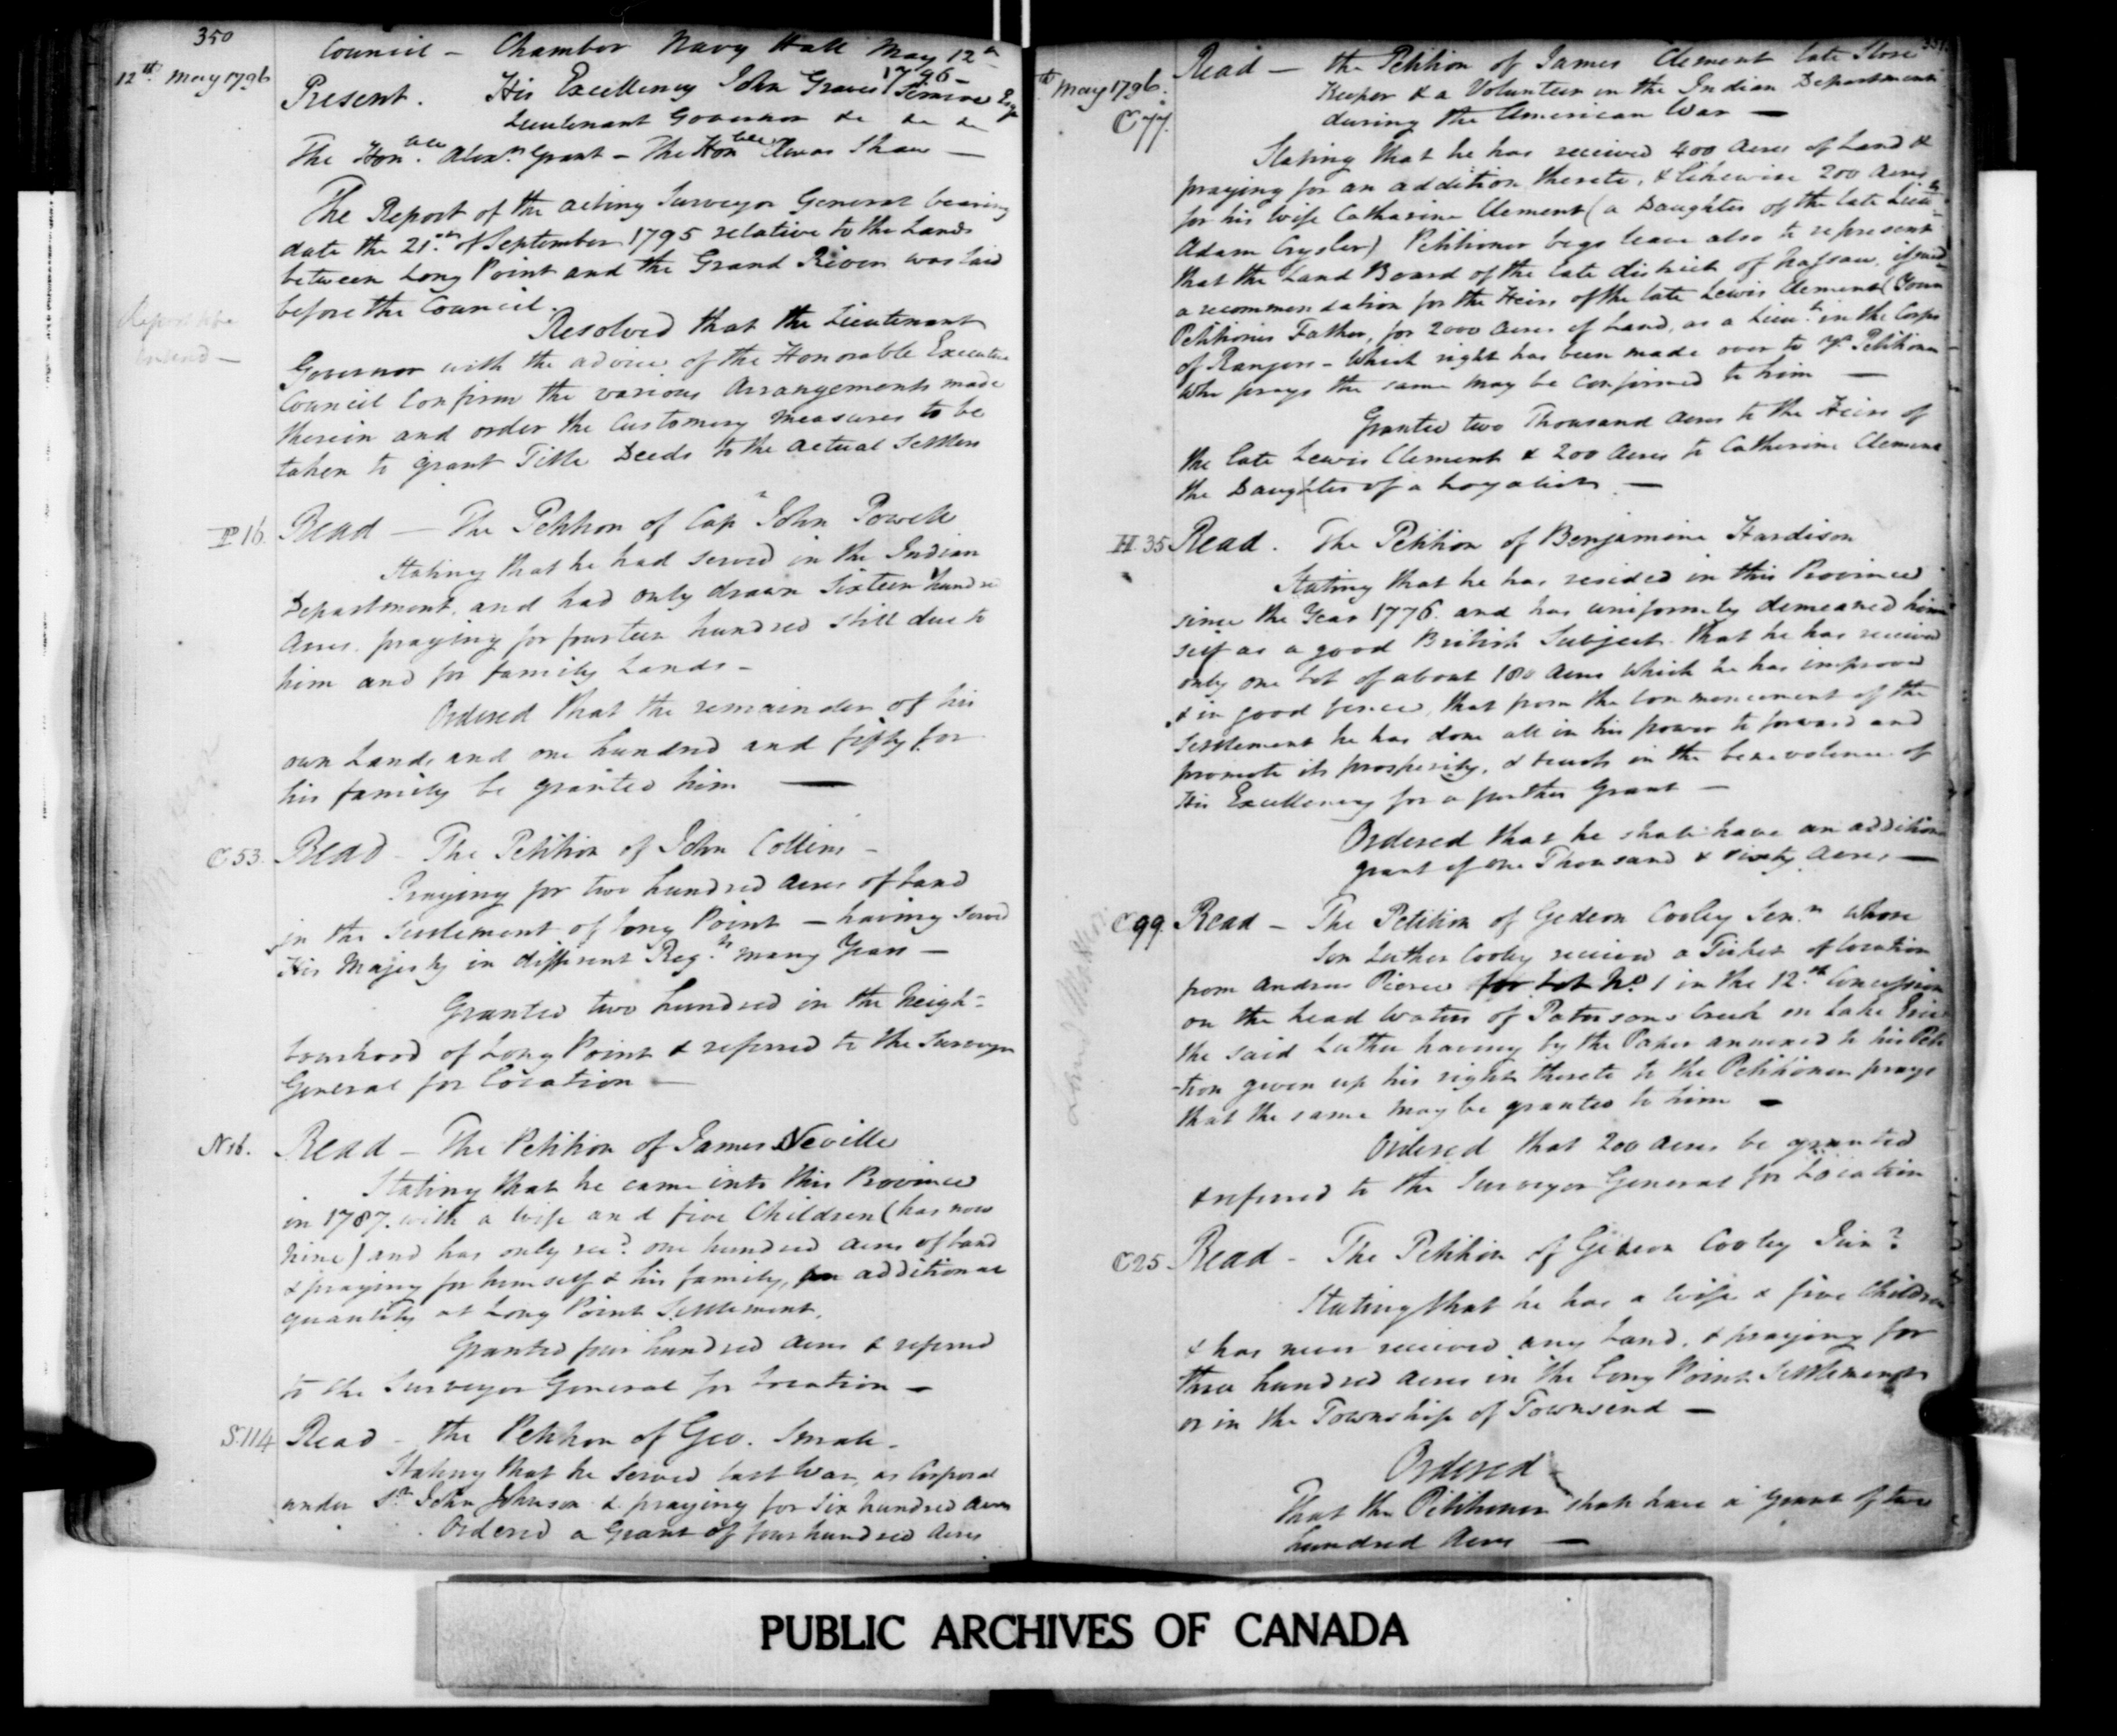 350
12th May 1796
Council - Chamber Navy Hall May 12th
1796 -
Present. His Excellency John Graves Simcoe Esqr
Lieutenant Governor &c &c &c
The Honble Alexr Grant - The Honble Æneas Shaw -
The Report of the acting Surveyor General bearing
date the 21st of September 1795 relative to the Lands
between Long Point and the Grand River was laid
before the Council.
Resolved that the Lieutenant
Governor with the advice of the Honorable Executive
Council Confirm the various Arrangements made
therein and order the Customary measures to be
taken to grant Title Deeds to the actual Settlers
P16. Read - The Petition of Capn John Powell
Stating that he had served in the Indian
Department, and had only drawn Sixteen hundred
Acres. praying for fourteen hundred still due to
him and for family Lands -
Ordered that the remainder of his
own Lands and one hundred and fifty for
his family be granted him -
C53. Read - The Petition of John Collins -
Praying for two hundred acres of Land
in the Settlement of Long Point - having served
His Majesty in different Regts many Years -
Granted two hundred in the Neigh=
bourhood of Long Point & referred to the Surveyor
General for location -
N16. Read - The Petition of James Neville
Stating that he came into this Province
in 1787. with a wife and five Children (has now
Nine) and has only recd. one hundred acres of Land
& praying for himself & his family, an additional
quantity at Long Point Settlement.
Granted four hundred acres & referred
to the Surveyor General for Location -
S114 Read - the Petition of Geo. Smale -
Stating that he served last War, as Corporal
under Sr John Johnson & praying for six hundred acres
Ordered a Grant of four hundred Acres
351.
th May 1796.
C77.
Read - the Petition of James Clement late Store
Keeper & a Volunteer in the Indian Department
during the American War -
Stating that he has received 400 Acres of Land &
praying for an addition thereto, & likewise 200 Acres
for his wife Catharine Clement (a Daughter of the late Lieut
Adam Crysler) Petitioner begs leave also to represent
that the Land Board of the late district of Nassau issued
a recommendation for the Heirs of the late Lewis Clement (Your
Petitioners Father, for 2000 Acres of Land, as a Lieut. in the Corps
of Rangers - Which right has been made over to yr Petitioner
Who prays the same may be confirmed to him -
Granted two Thousand Acres to the Heirs of
the late Lewis Clement & 200 Acres to Catherine Clement
the Daughter of a Loyalist -
H35 Read. The Petition of Benjamine Hardison
Stating that he has resided in this Province
since the Year 1776. and has uniformly demeaned him
self as a good British Subject. that he has received
only one Lot of about 180 Acres Which he has improved
& in good fence, that from the Commencement of the
Settlement he has done all in his power to forward and
promote its prosperity, & trusts in the benevolence of
His Excellency for a further Grant -
Ordered that he shall have an additional
grant of one Thousand & sixty Acres -
C99. Read - The Petition of Gedeon Cooley Senr. Whose
Son Luther Cooley received a Ticket of location
from Andrew Pierce for Lot No. 1 in the 12th Concession
on the head Waters of Patersons Creek on Lake Erie
the said Luther having by the Paper annexed to his Peti
-tion given up his right thereto to the Petitioner prays
that the same may be granted to him -
Ordered that 200 Acres be granted
& referred to the Surveyor General for Location
C25. Read - The Petition of Gideon Cooley Junr
Stating that he has a wife & five Children
& has never received any Land, & praying for
three hundred Acres in the Long Point Settlement
or in the Township of Townsend -
Ordered
That the Petitioner shall have a Grant of two
hundred Acres -
PUBLIC ARCHIVES OF CANADA